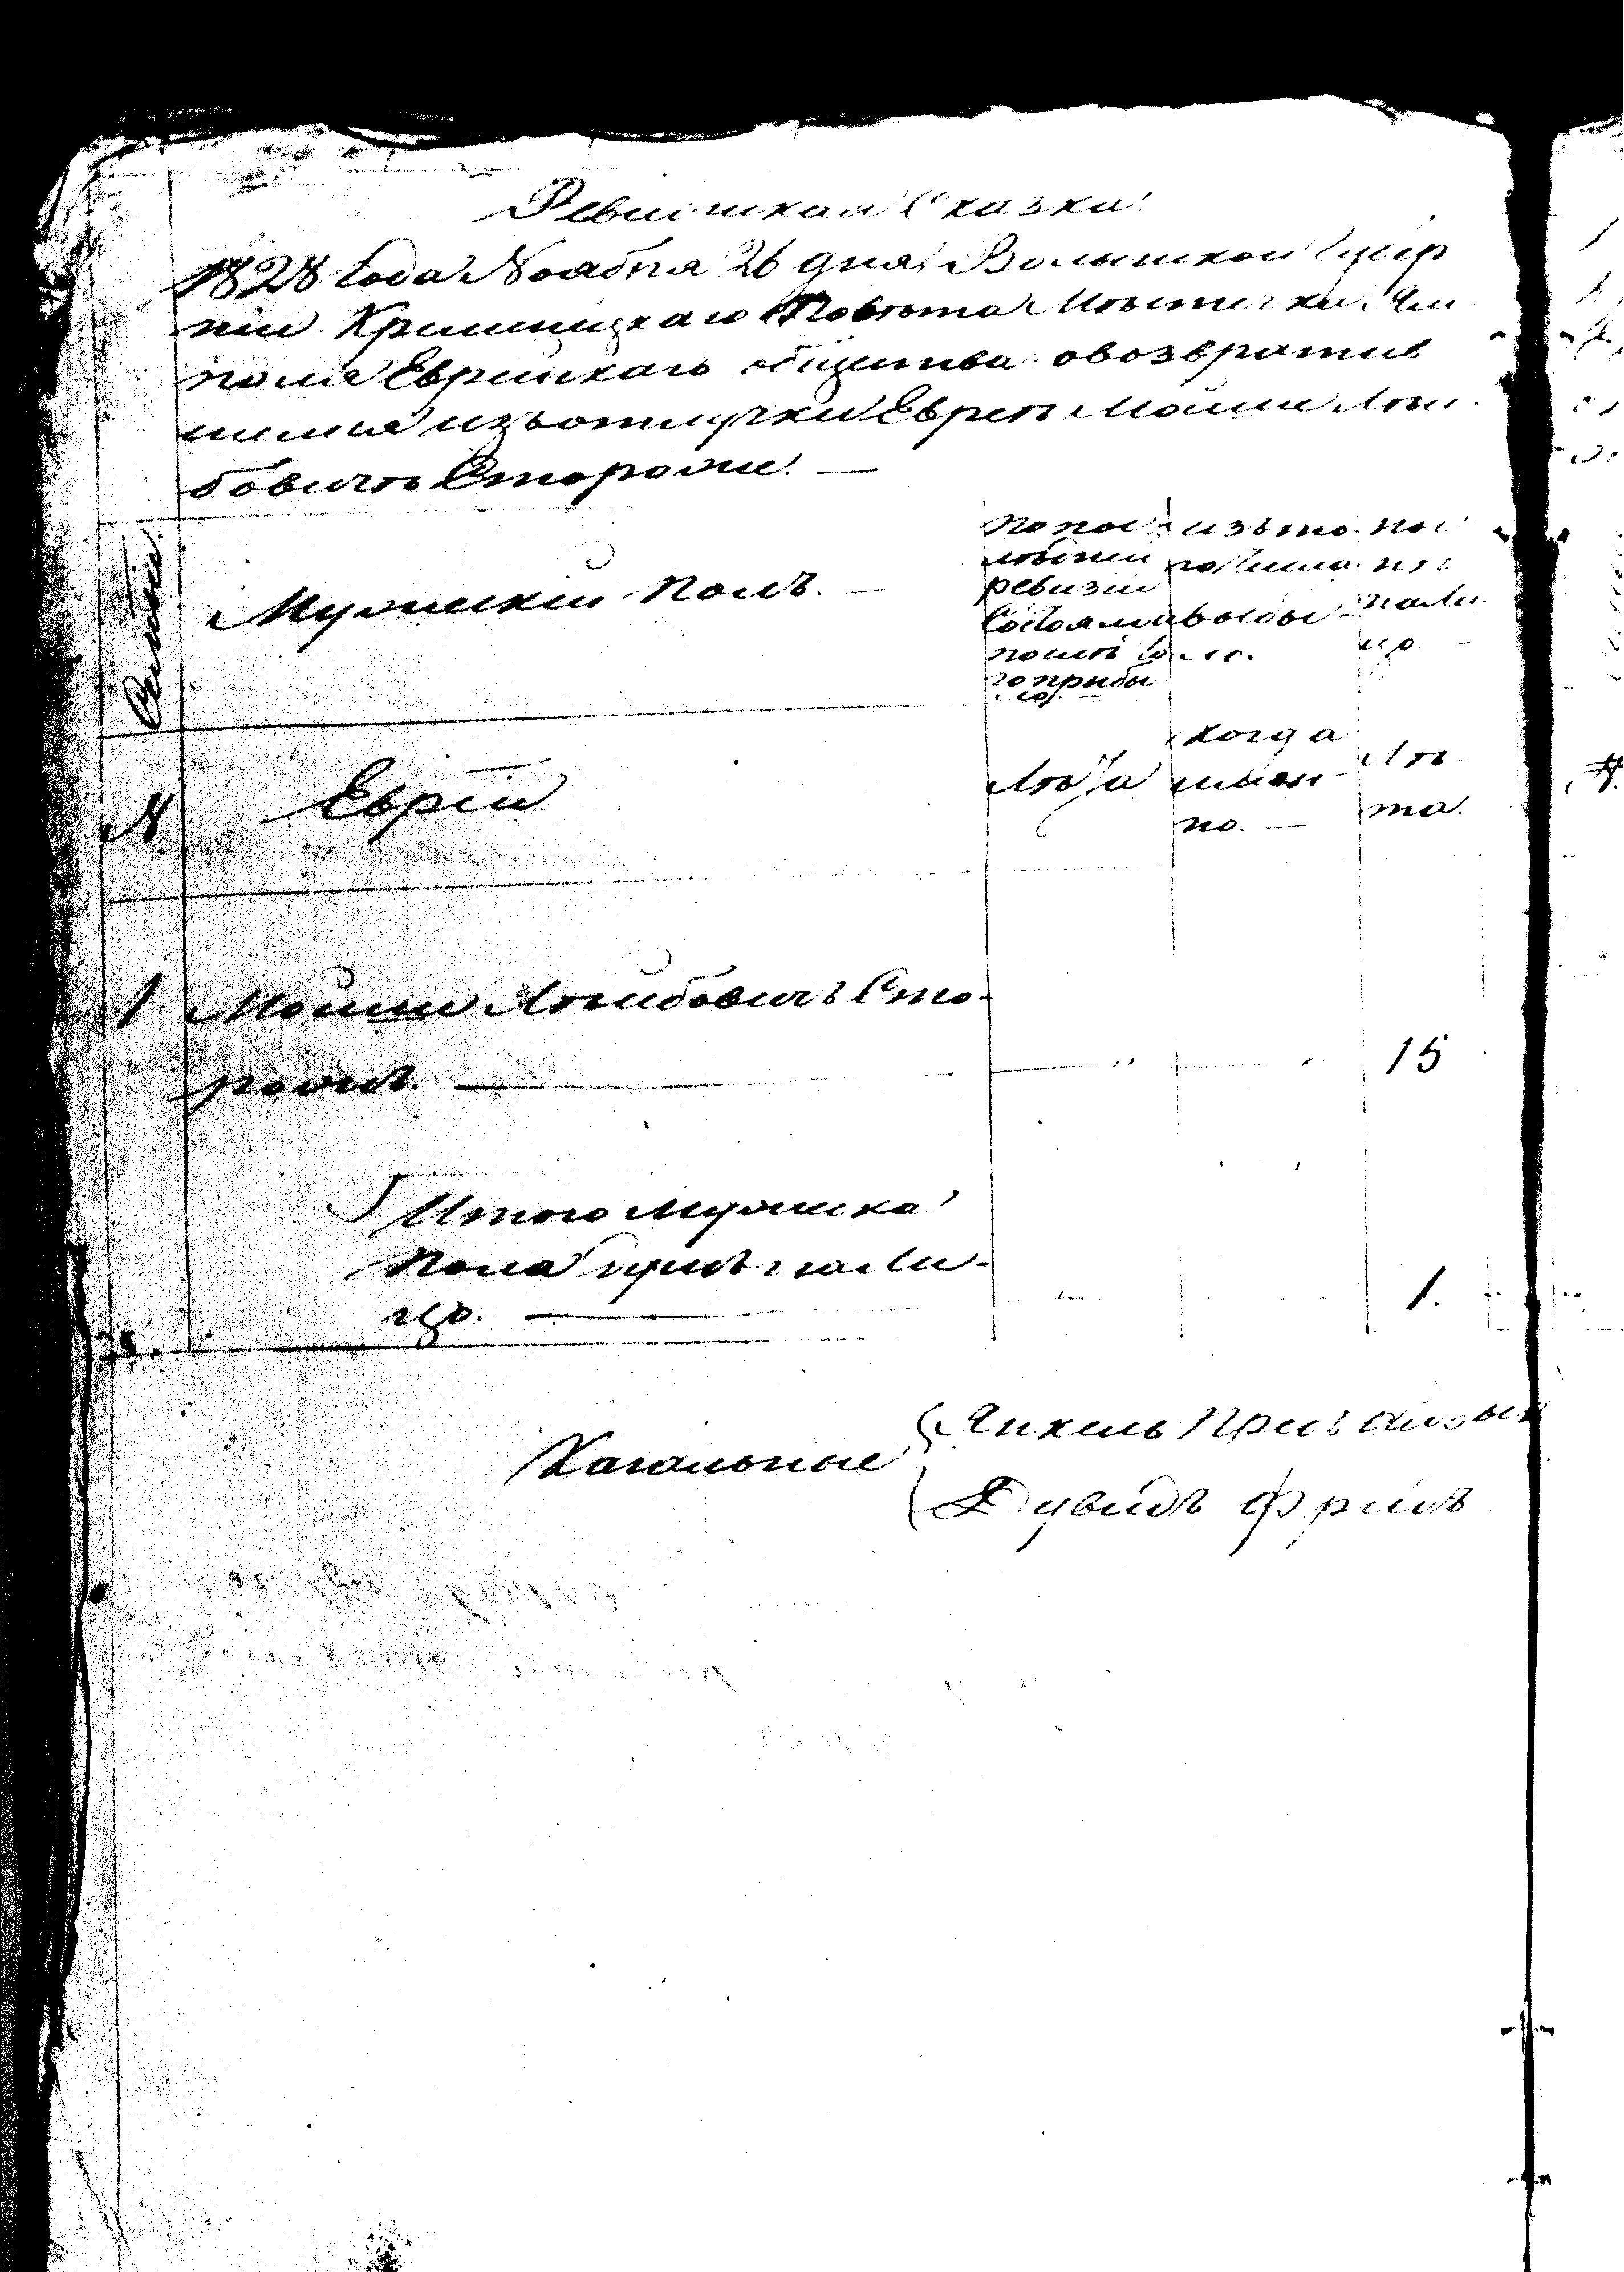 Ревизская Сказка
1828 года Ноября 26 дня Волынской Губер
ніи Кременецкаго Повѣта Мѣстечка Ям
поля Еврейскаго общества о возвратив
шемся изъ отлучки Еврей Мошко Лей
бовичъ Сторожъ. —
Семьи
Мужескій полъ. —
по пос
лѣдней
ревизіи
состояло и
послѣ то
го прибы
ло
изъ то
го числа
выбы
ло.
нынѣ
на ли
цо.
№ Евреи
Лѣта
когда
имен
но. —
Лѣ
та.
1 Мошко Лейбовичъ Сто-
рожъ. — 15
Итого мужеска
пола душъ на ли-
цо. — 1.
Кагальные
Янкель
Дувидъ Фридъ